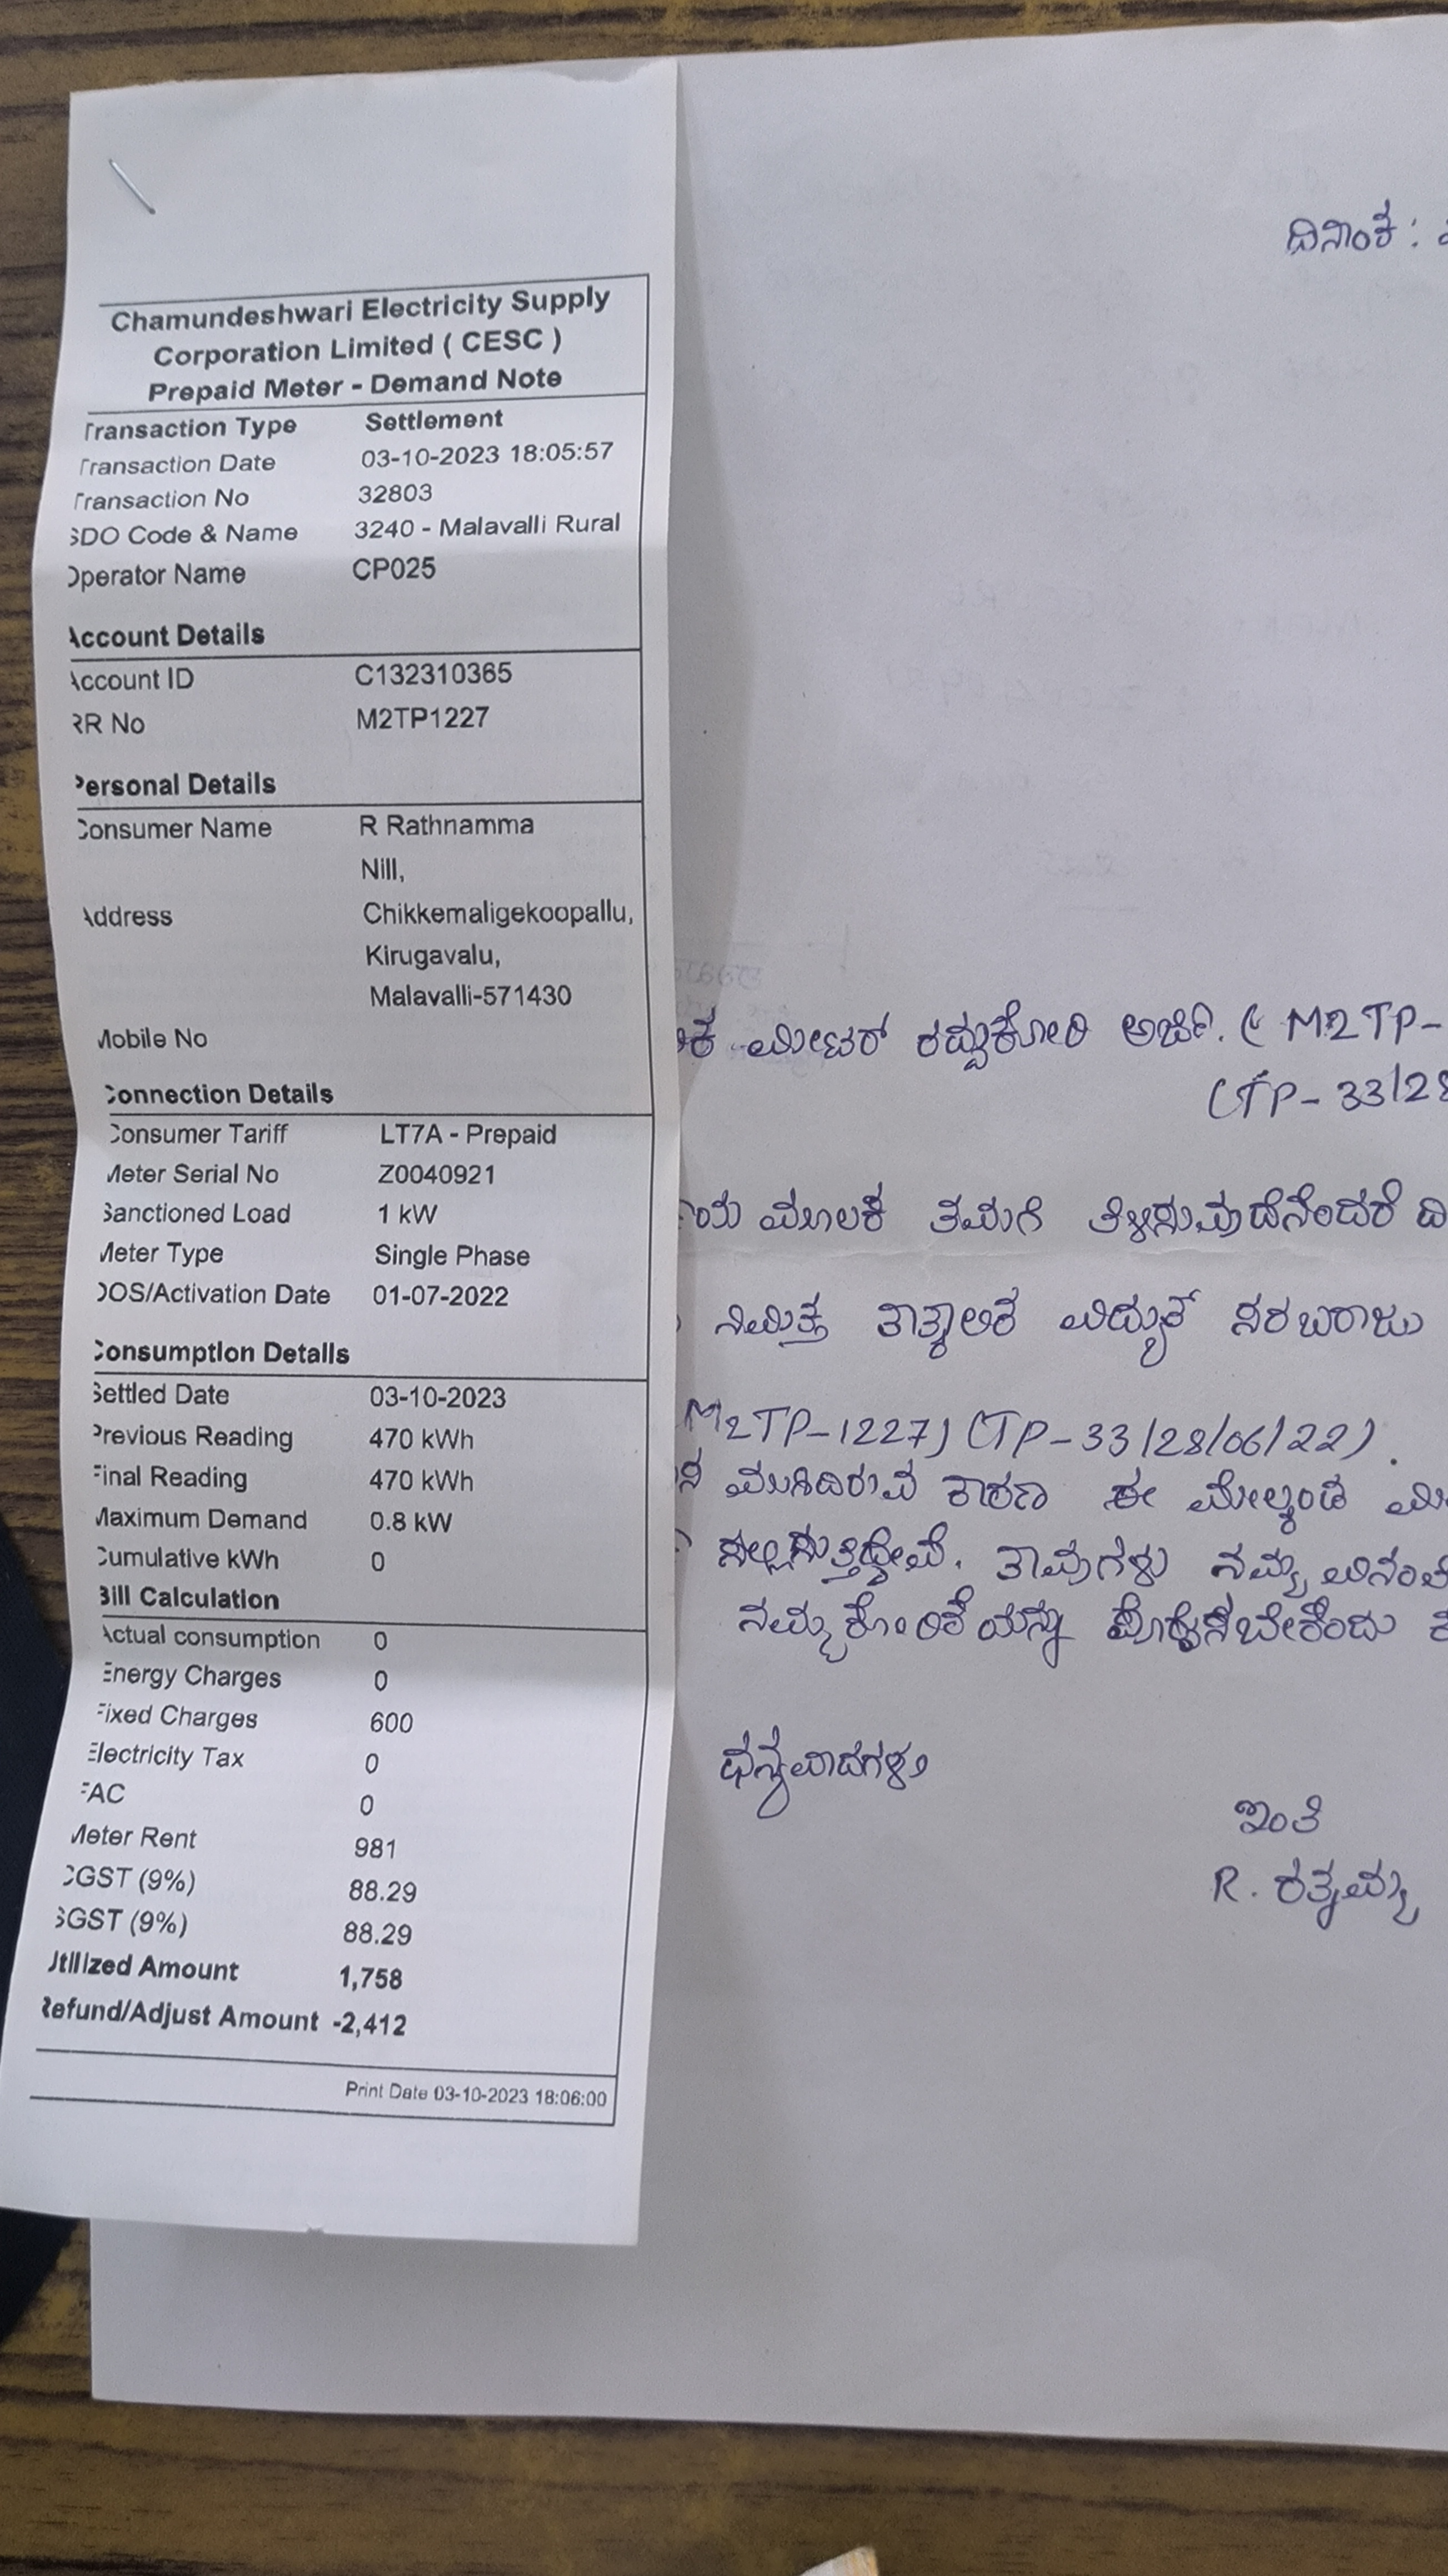 Chamundeshwari Electricity Supply
Corporation Limited ( CESC )
Prepaid Meter - Demand Note
Transaction Type Settlement
Transaction Date 03-10-2023 18:05:57
Transaction No 32803
SDO Code & Name 3240 - Malavalli Rural
Operator Name CP025
Account Details
Account ID C132310365
RR No M2TP1227
Personal Details
Consumer Name R Rathnamma
Nill,
Address Chikkemaligekoopallu,
Kirugavalu,
Malavalli-571430
Mobile No
Connection Details
Consumer Tariff LT7A - Prepaid
Meter Serial No Z0040921
Sanctioned Load 1 kW
Meter Type Single Phase
DOS/Activation Date 01-07-2022
Consumption Details
Settled Date 03-10-2023
Previous Reading 470 kWh
Final Reading 470 kWh
Maximum Demand 0.8 kW
Cumulative kWh 0
Bill Calculation
Actual consumption 0
Energy Charges 0
Fixed Charges 600
Electricity Tax 0
FAC 0
Meter Rent 981
CGST (9%) 88.29
SGST (9%) 88.29
Utilized Amount 1,758
Refund/Adjust Amount -2,412
Print Date 03-10-2023 18:06:00
ದಿನಾಂಕ :
ಮೀಟರ್ ರದ್ದುಕೋರಿ ಅರ್ಜಿ. ( M2TP-
(TP- 33/28
ಮೂಲಕ ತಮಗೆ ತಿಳಿಸುವುದೆನೆಂದರೆ
ನಿಮಿತ್ತ ತಾತ್ಕಾಲಿಕ ವಿದ್ಯುತ್ ಸರಬರಾಜು
M2TP-1227) (TP-33/28/06/22).
ಮುಗಿದಿರುವ ಕಾರಣ ಈ ಮೇಲ್ಕಂಡ
ಸಲ್ಲಿಸುತ್ತಿದ್ದೇವೆ. ತಾವುಗಳು ನಮ್ಮ
ನಮ್ಮ ಕೋರಿಕೆಯನ್ನು
ಧನ್ಯವಾದಗಳು
ಇಂತಿ
R. ರತ್ನಮ್ಮ